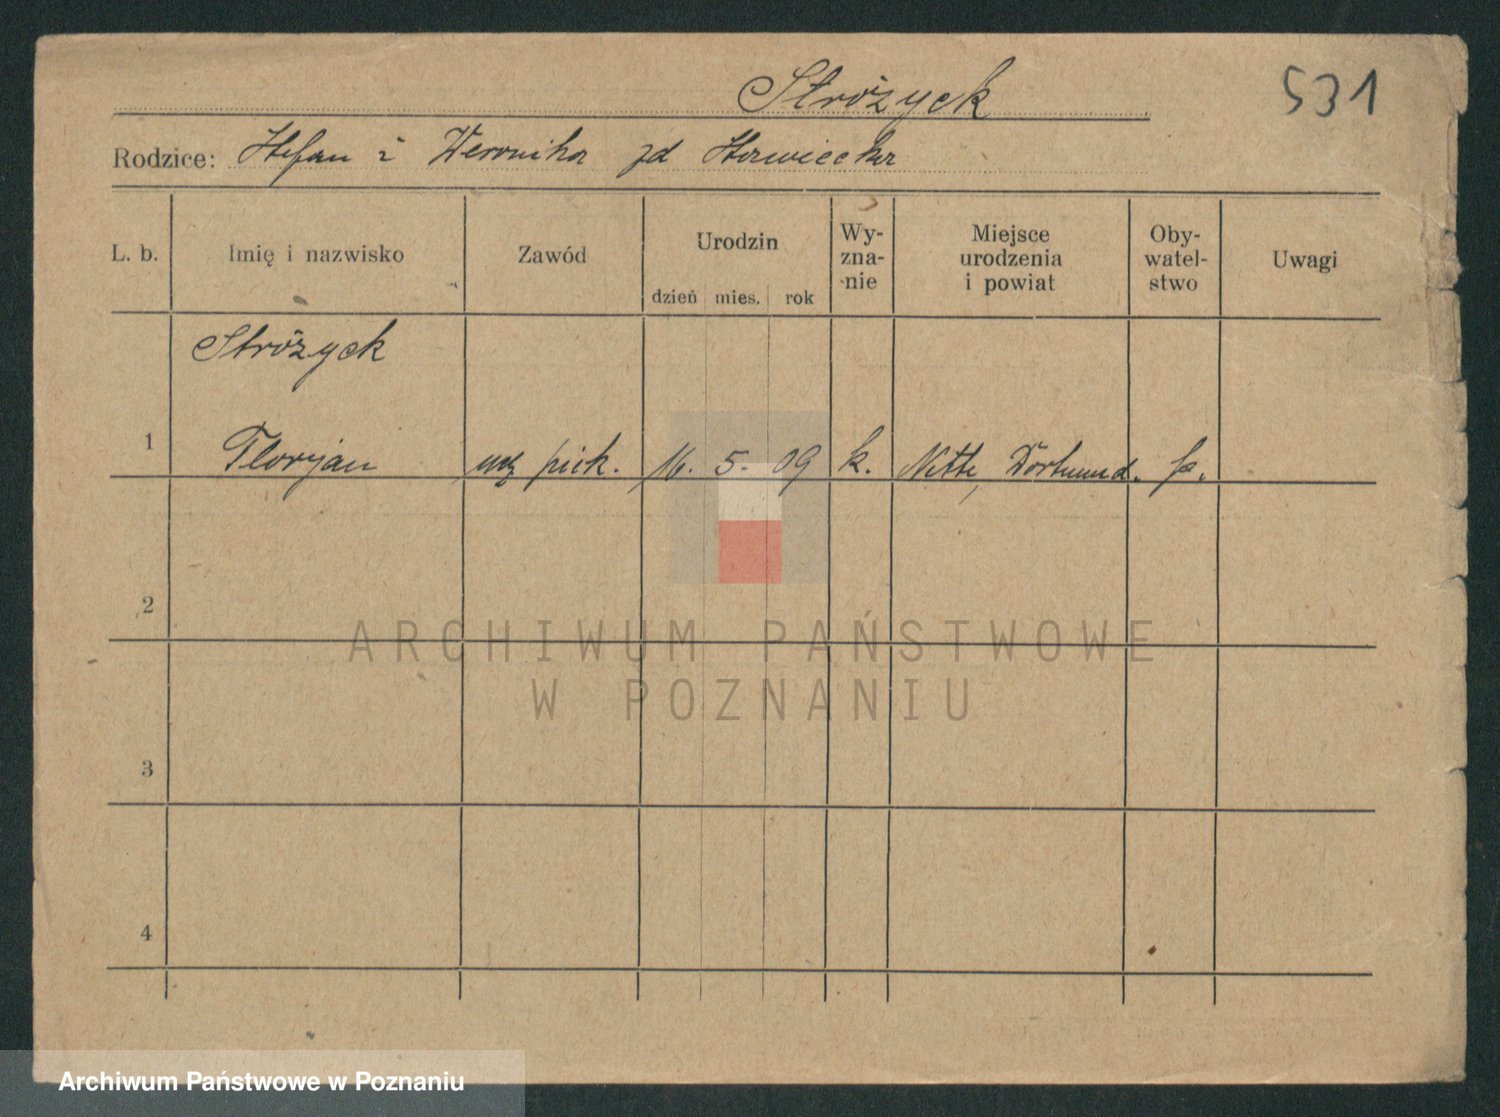 Stróżyck 531
Rodzice: Stefan i Weronika zd
L. b. Imię i nazwisko Zawód Urodzin dzień mies. rok Wy-zna-nie Miejsce urodzenia i powiat Oby-watel-stwo Uwagi
Stróżyck
1 Florjan ucz piek. 16. 5. 09 k. Nitte, Dortmund. p.
2
ARCHIWUM PAŃSTWOWE
W POZNANIU
3
4
Archiwum Państwowe w Poznaniu